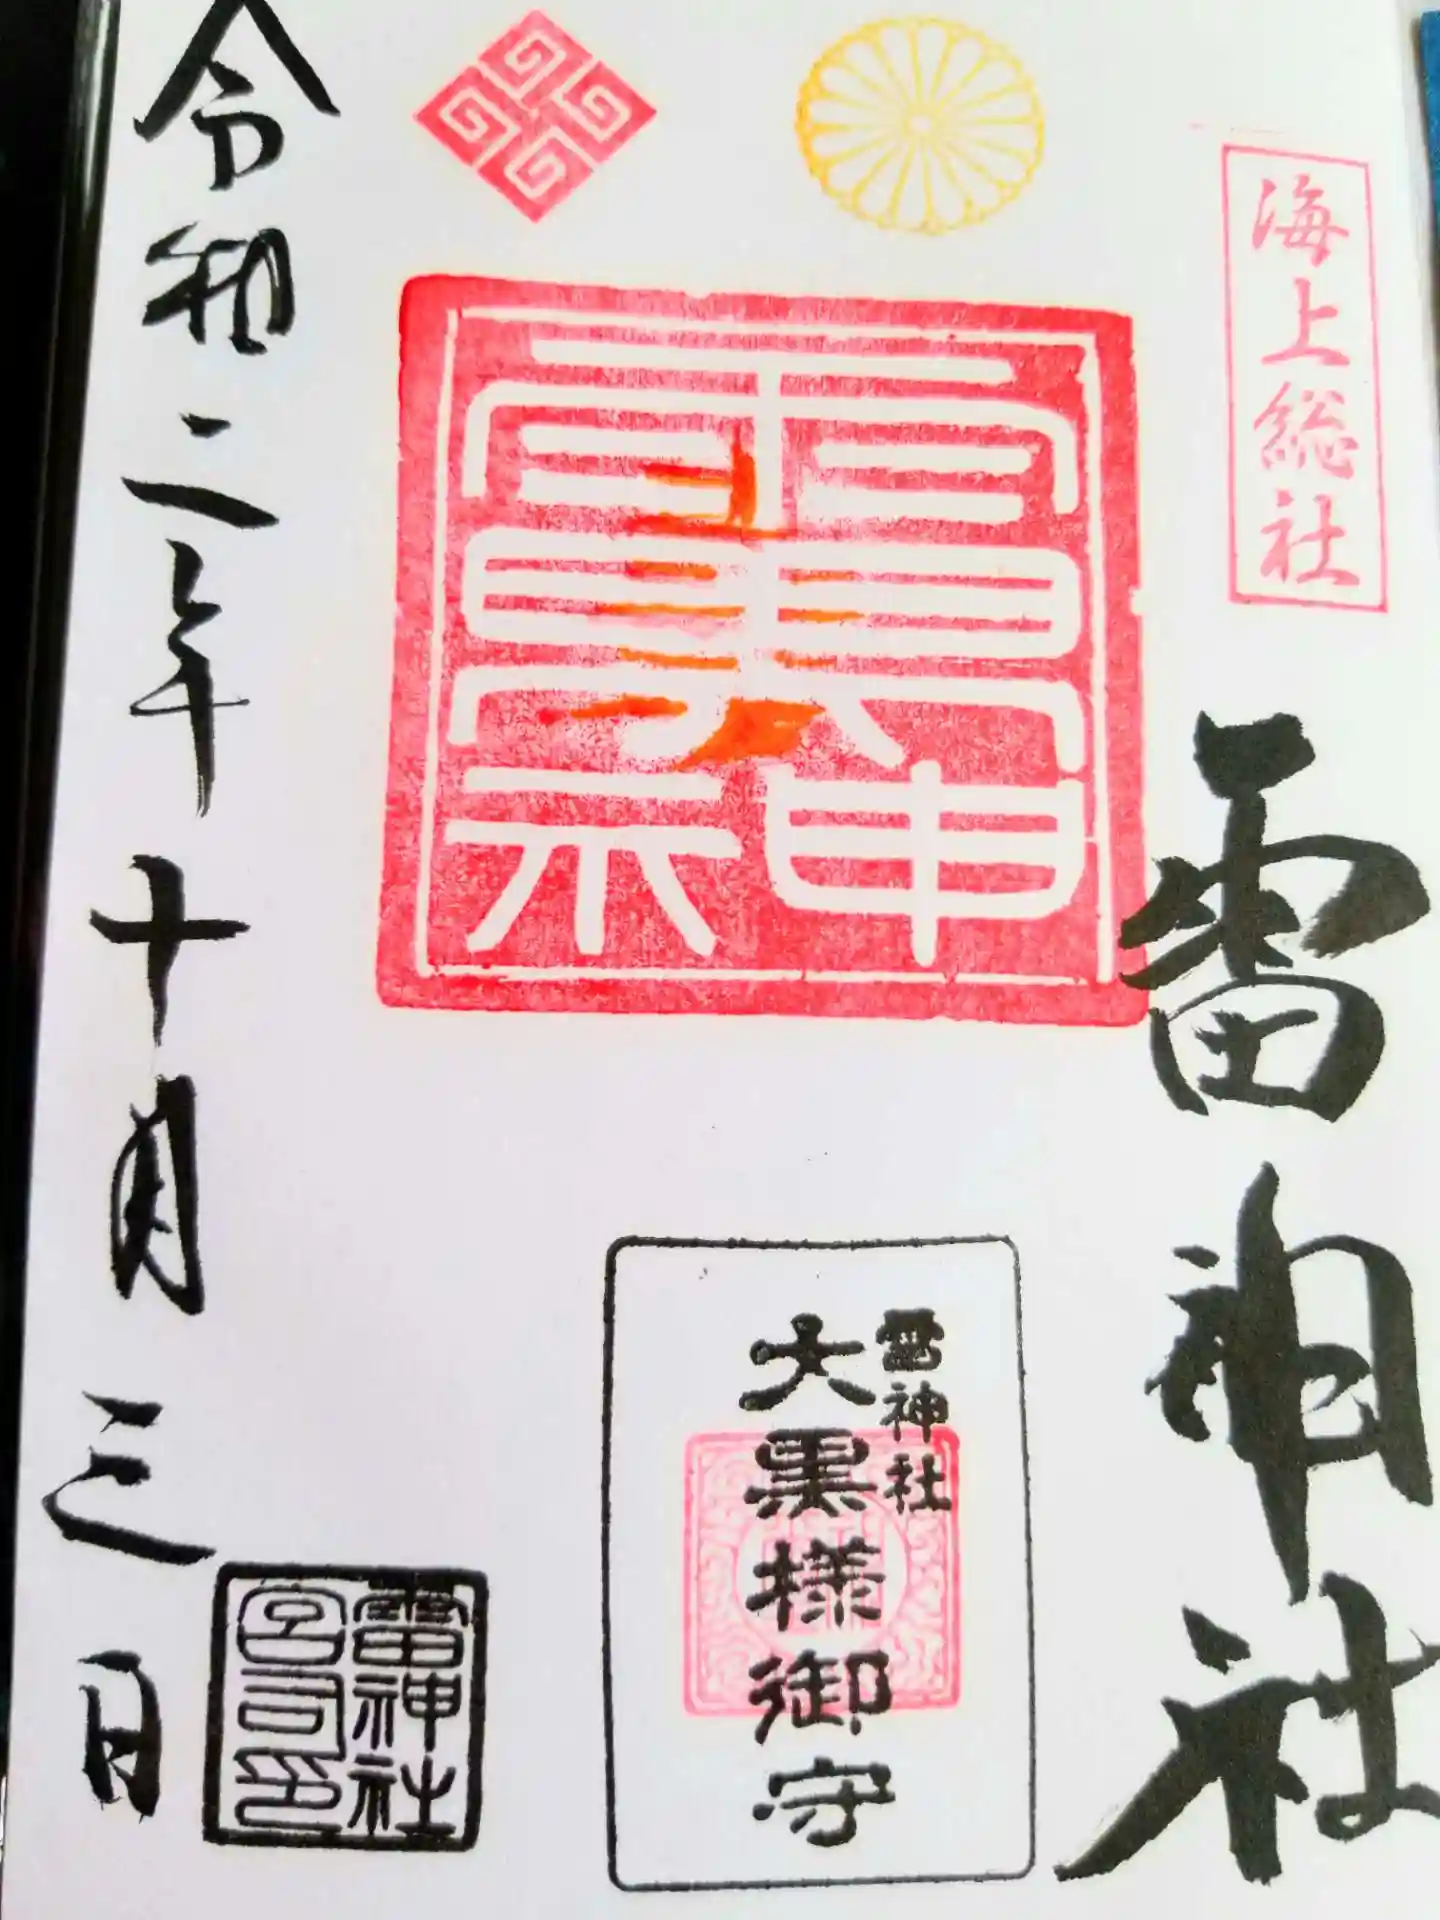 海上総社
雷神社
雷神社
大黒様御守
雷神社
宮司印
令和二年十月三日